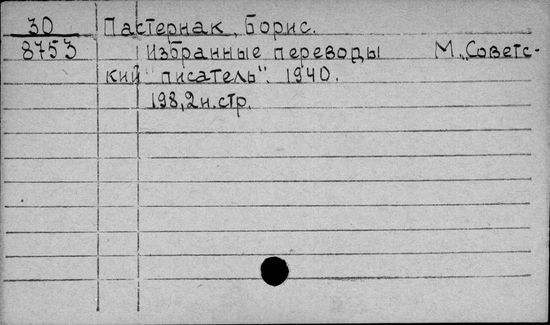 30 Пастернак, Борис.
8753 Избранные переводы М. „Советс-
кий писатель". 1940.
198,2н.стр.